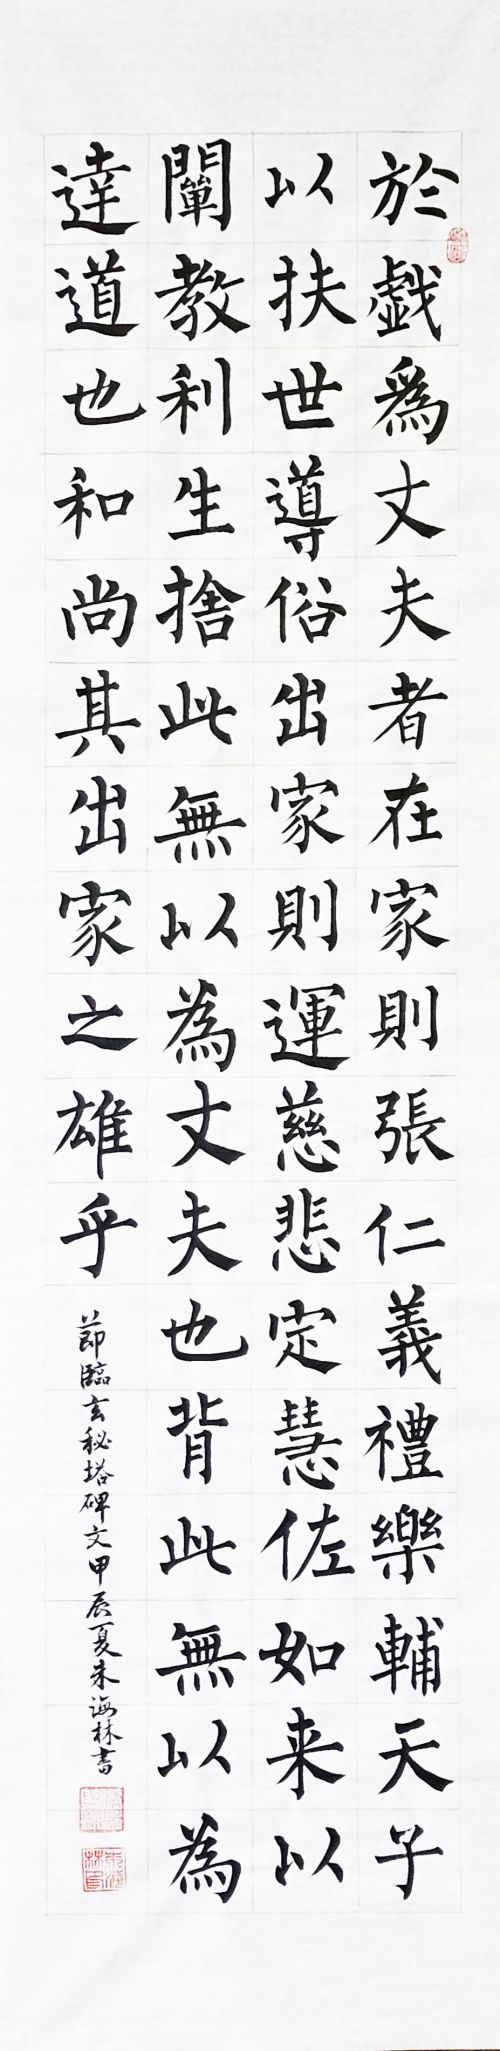 於戲為丈夫者在家則張仁義禮樂輔天子
以扶世導俗出家則運慈悲定慧佐如来以
闡教利生捨此無以為丈夫也背此無以為
達道也和尚其出家之雄乎
節臨玄秘塔碑文甲辰夏朱海林書